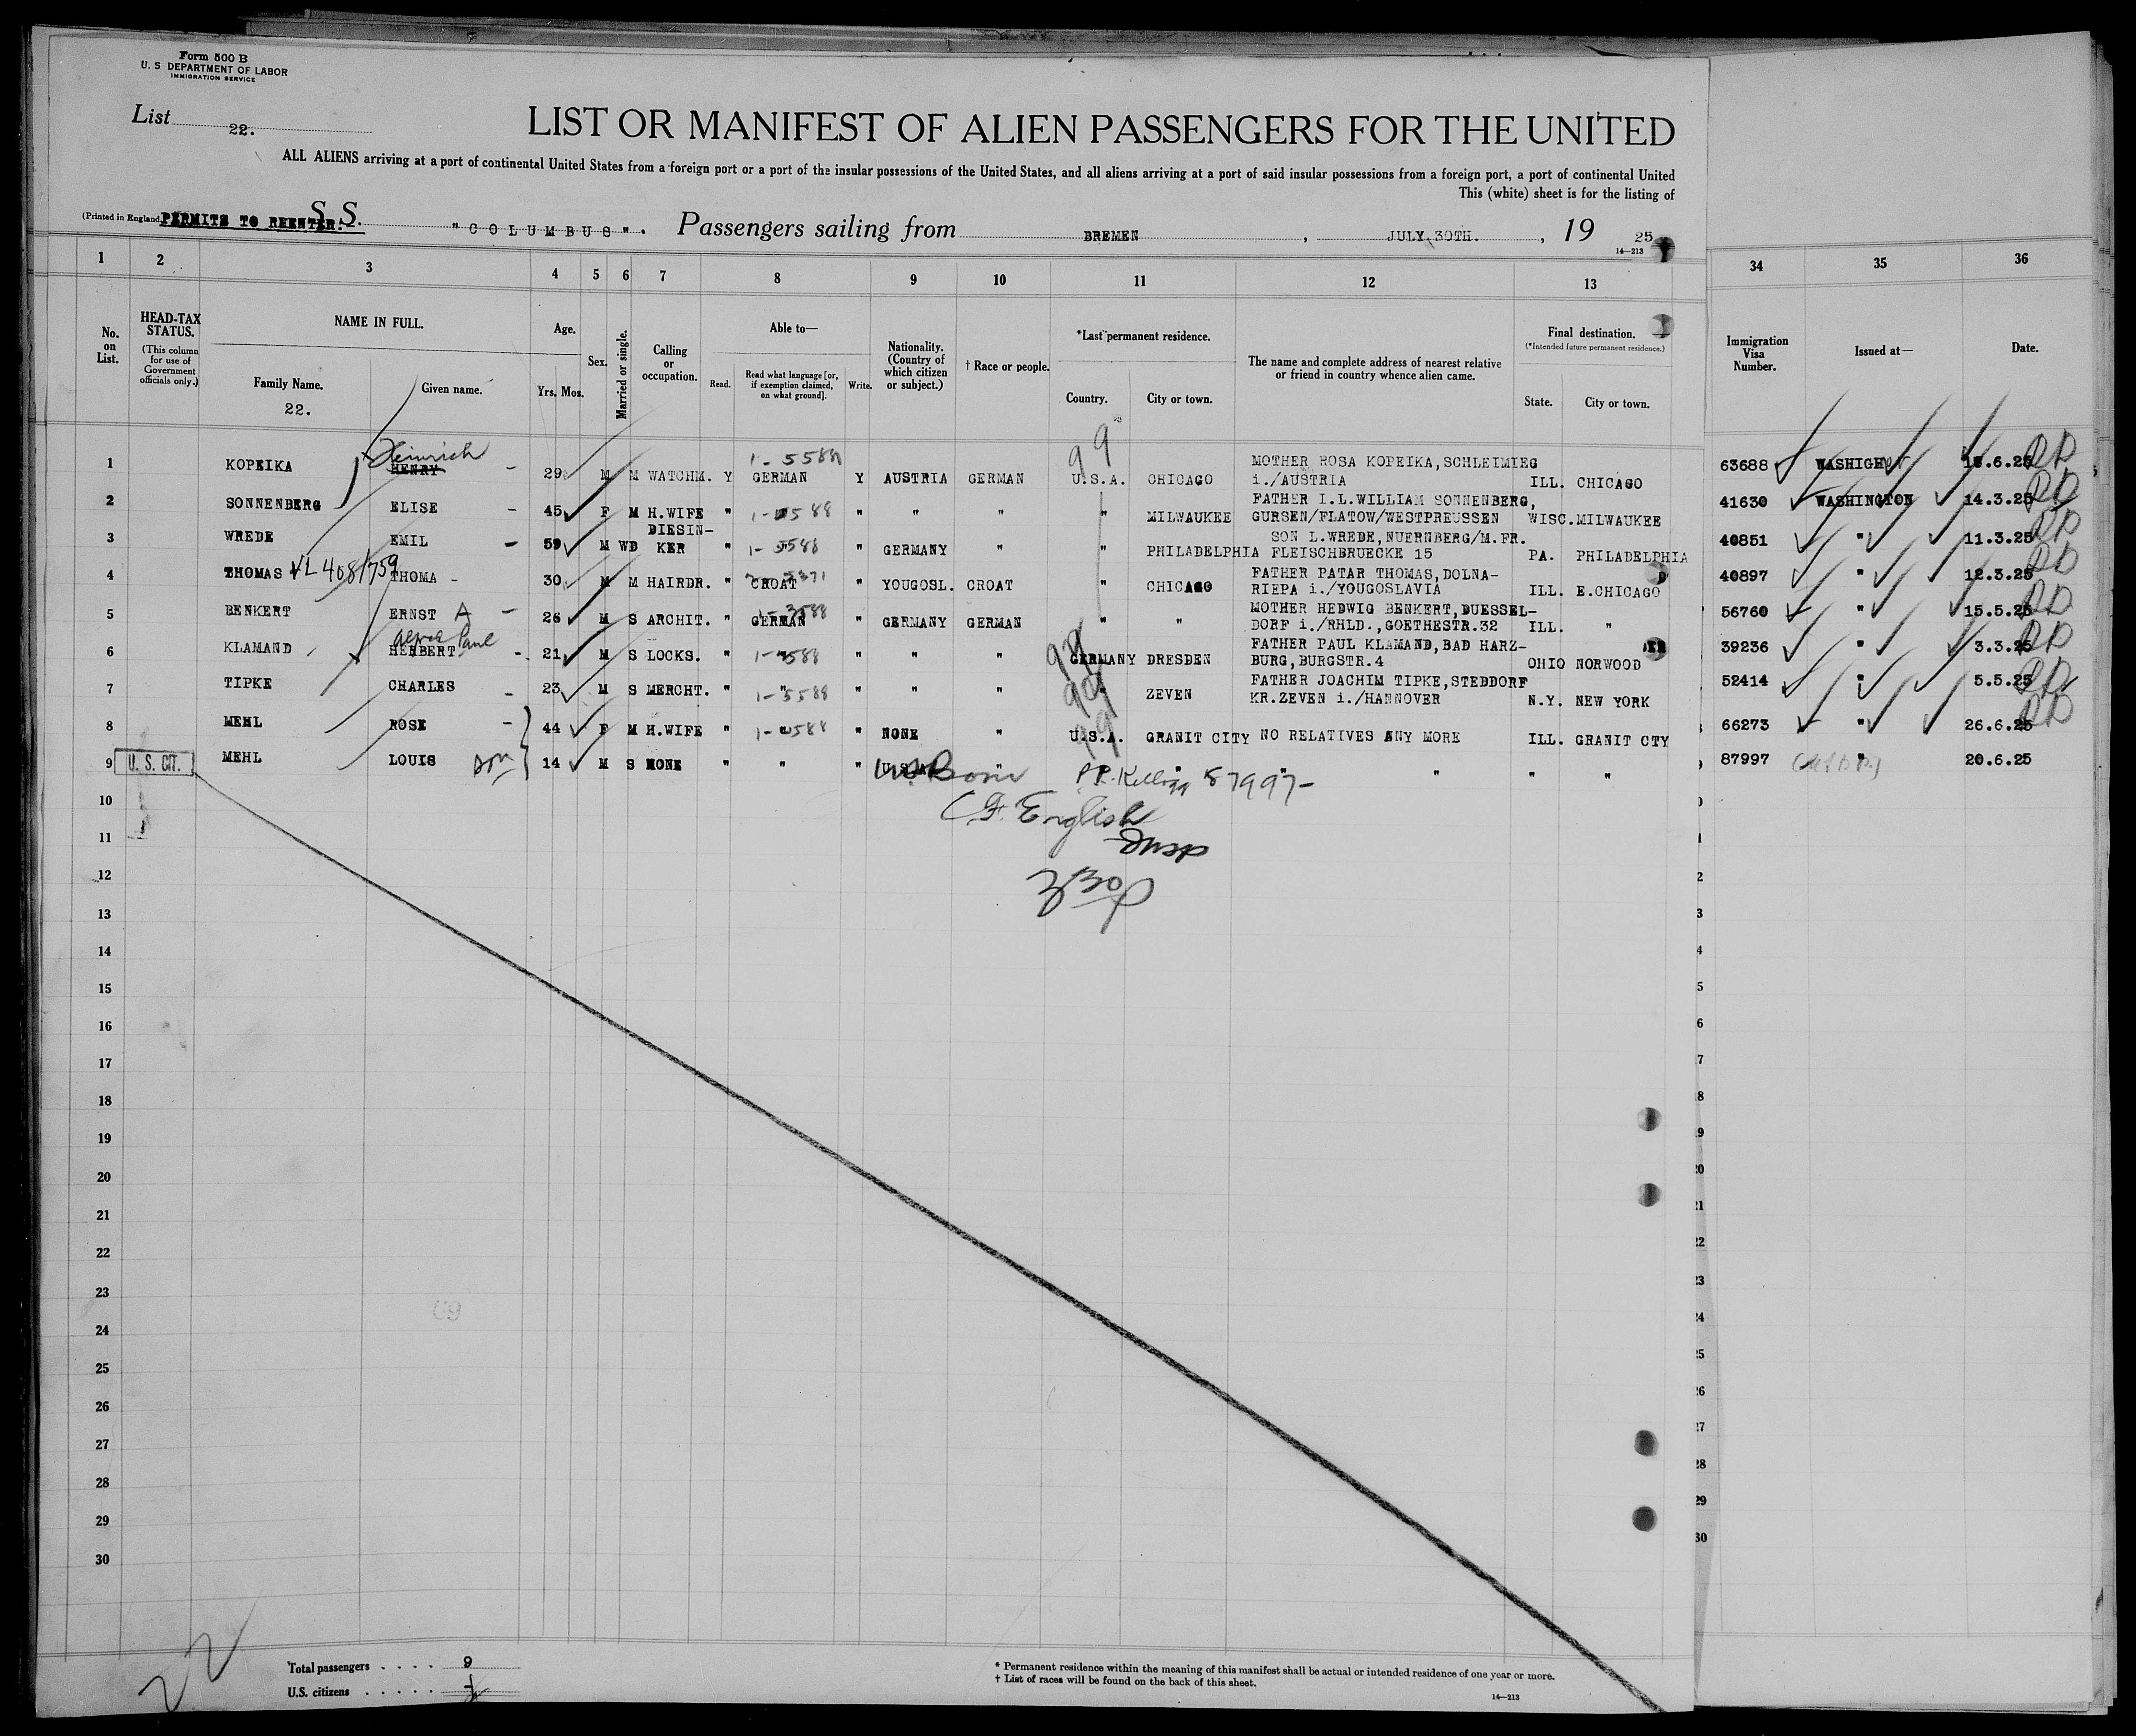 Form 500 B
U. S DEPARTMENT OF LABOR
IMMIGRATION SERVICE
List 22.
LIST OR MANIFEST OF ALIEN PASSENGERS FOR THE UNITED
ALL ALIENS arriving at a port of continental United States from a foreign port or a port of the insular possessions of the United States, and all aliens arriving at a port of said insular possessions from a foreign port, a port of continental United
This (white) sheet is for the listing of
(Printed in England PERMITS TO REENTER. S. S. "COLUMBUS". Passengers sailing from BREMEN, JULY 30TH., 19 25
14—213
1 2 3 4 5 6 7 8 9 10 11 12 13 34 35 36
No. on List.
HEAD-TAX STATUS.
(This column for use of Government officials only.)
NAME IN FULL.
Family Name. Given name.
22.
Age.
Yrs. Mos.
Sex.
Married or single.
Calling or occupation.
Able to—
Read. Read what language [or, if exemption claimed, on what ground]. Write.
Nationality. (Country of which citizen or subject.)
† Race or people.
*Last permanent residence.
Country. City or town.
The name and complete address of nearest relative or friend in country whence alien came.
Final destination.
(*Intended future permanent residence.)
State. City or town.
Immigration Visa Number.
Issued at—
Date.
99
1 KOPEIKA Heinrich HENRY 29 M M WATCHM. Y GERMAN Y AUSTRIA GERMAN U.S.A. CHICAGO MOTHER ROSA KOPEIKA,SCHLEIMIEG i./AUSTRIA ILL. CHICAGO 63688
2 SONNENBERG ELISE 45 F M H.WIFE " " " " " MILWAUKEE FATHER I.L.WILLIAM SONNENBERG, GURSEN/FLATOW/WESTPREUSSEN WISC. MILWAUKEE 41630 WASHINGTON 14.3.25
3 WREDE EMIL 59 M WD DIESIN-KER " " GERMANY " " PHILADELPHIA SON L.WREDE,NUERNBERG/M.FR. FLEISCHBRUECKE 15 PA. PHILADELPHIA 40851 " 11.3.25
4 THOMAS VL 4081/759 THOMA 30 M M HAIRDR. " CROAT " YOUGOSL. CROAT " CHICAGO FATHER PATAR THOMAS,DOLNA-RIEPA i./YOUGOSLAVIA ILL. E.CHICAGO 40897 " 12.3.25
5 BENKERT ERNST A 26 M S ARCHIT. " GERMAN " GERMANY GERMAN " " MOTHER HEDWIG BENKERT,DUESSEL-DORF i./RHLD.,GOETHESTR.32 ILL. " 56760 " 15.5.25
6 KLAMAND HERBERT Paul 21 M S LOCKS. " " " " GERMANY DRESDEN FATHER PAUL KLAMAND,BAD HARZ-BURG,BURGSTR.4 OHIO NORWOOD 39236 " 3.3.25
7 TIPKE CHARLES 23 M S MERCHT. " " " " " " ZEVEN FATHER JOACHIM TIPKE,STEDDORF KR.ZEVEN i./HANNOVER N.Y. NEW YORK 52414 " 5.5.25
8 MEHL ROSE 44 F M H.WIFE " " NONE " U.S.A. GRANIT CITY NO RELATIVES ANY MORE ILL. GRANIT CTY 66273 " 26.6.25
9 U. S. CIT. MEHL LOUIS son 14 M S NONE " " " U.S.A. Born " " " " " " 87997 " 20.6.25
87997
English
10
11
12
13
14
15
16
17
18
19
20
21
22
23
24
25
26
27
28
29
30
22
Total passengers . . . . 9
U.S. citizens . . . . .
* Permanent residence within the meaning of this manifest shall be actual or intended residence of one year or more.
† List of races will be found on the back of this sheet.
14—213